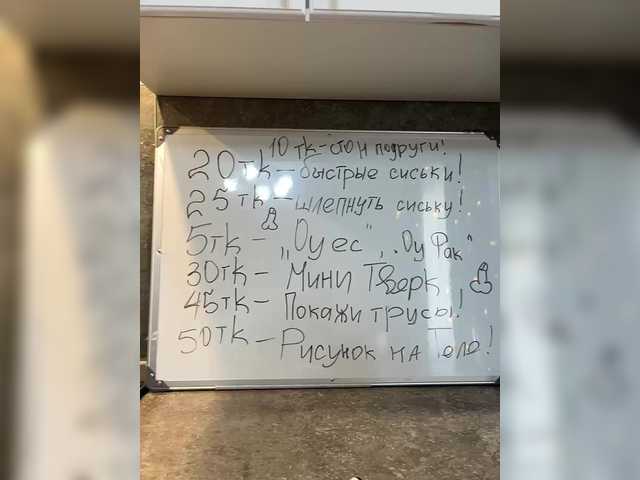 10 тk - стон подруги!
20 тk - быстрые сиськи!
25 тk - шлепнуть сиську!
5 тk - „Оу ес", „Оу Фак"
30 тk - Мини Тверк
45 тk - Покажи трусы!
50 тk - Рисунок на Теле!